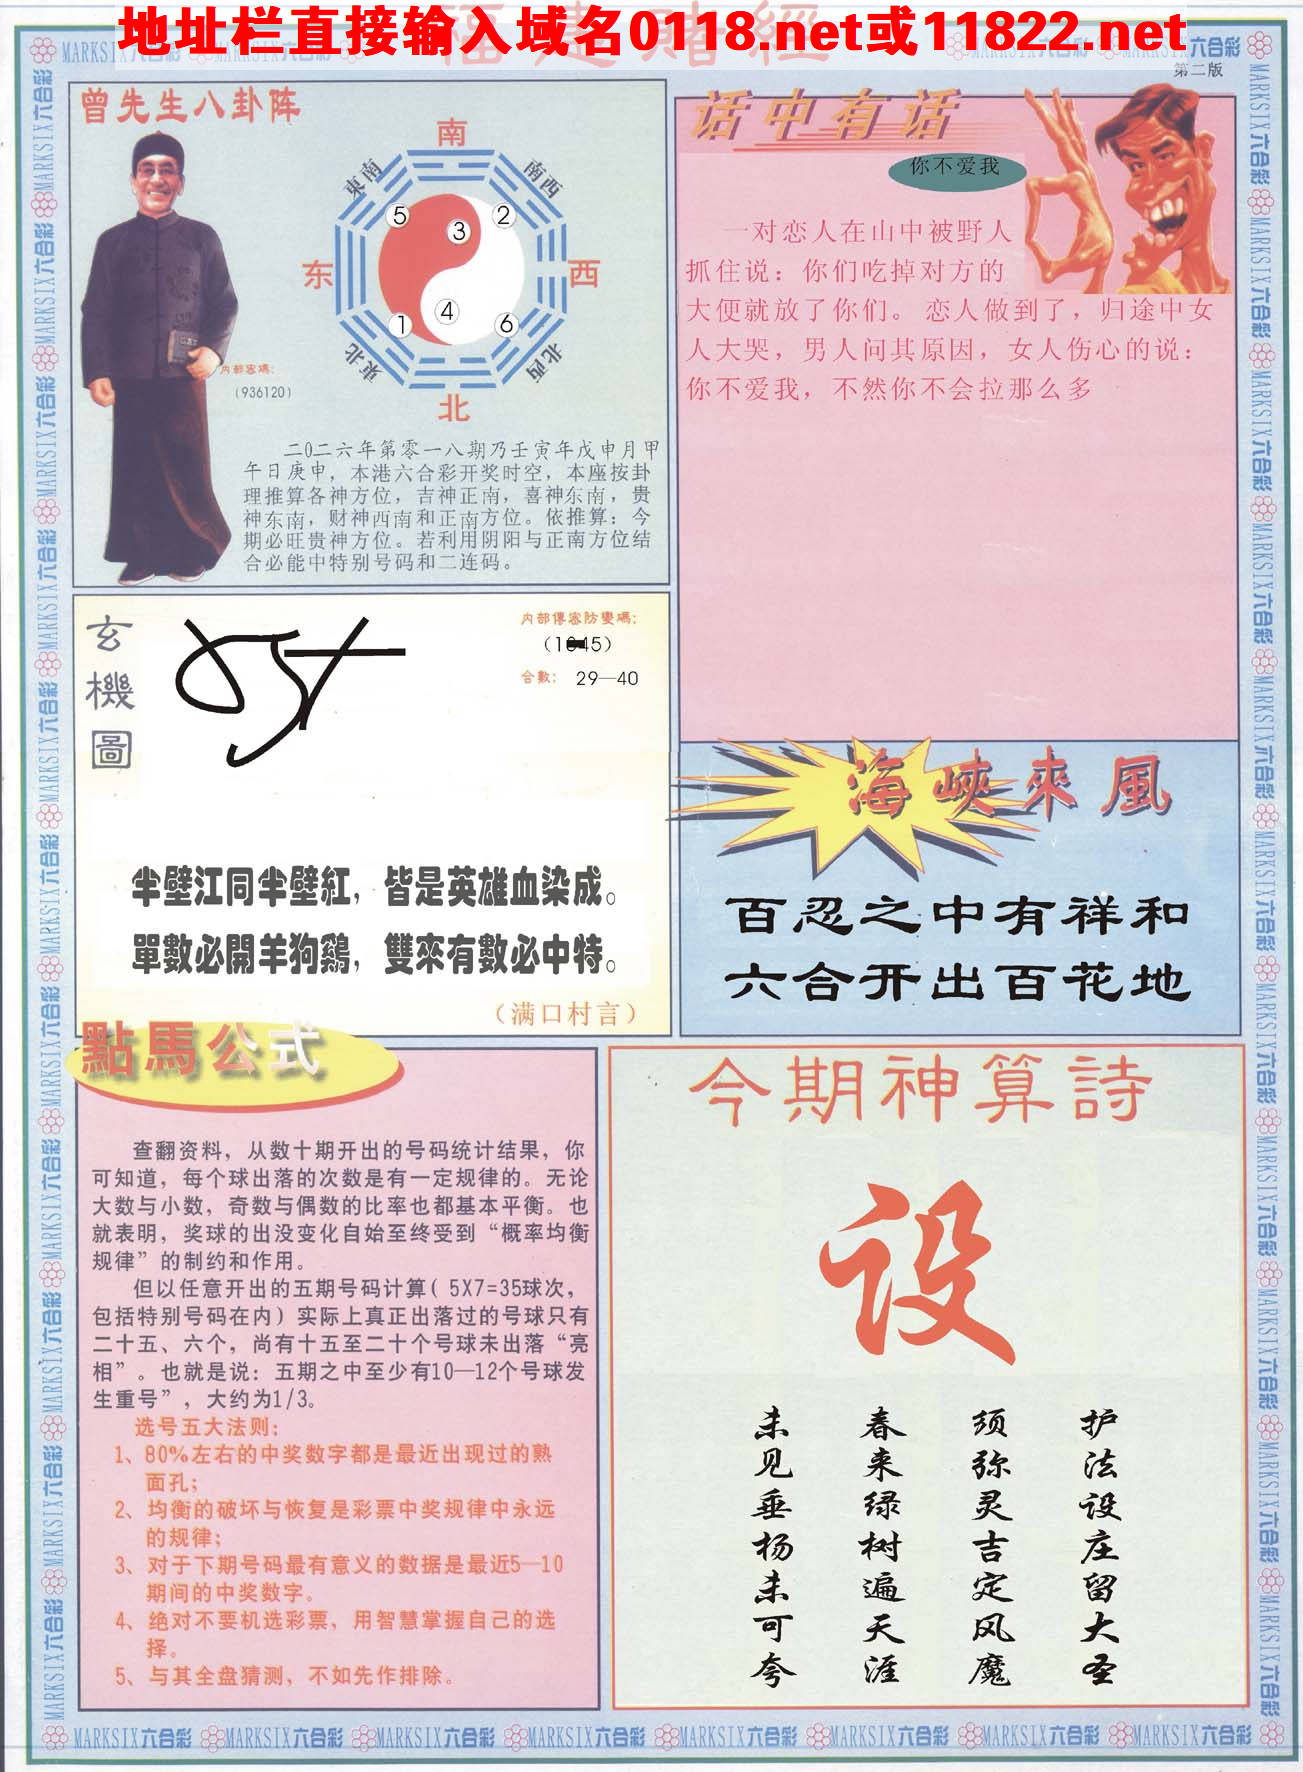 地址栏直接输入域名0118.net或11822.net
福建赌經
MARKSIX六合彩
第二版
曾先生八卦阵
南
東南
南西
5
3
2
东
西
4
1
6
東北
北西
北
内部密碼：
（936120）
二0二六年第零一八期乃壬寅年戊申月甲
午日庚申，本港六合彩开奖时空，本座按卦
理推算各神方位，吉神正南，喜神东南，贵
神东南，财神西南和正南方位。依推算：今
期必旺贵神方位。若利用阴阳与正南方位结
合必能中特别号码和二连码。
话中有话
你不爱我
一对恋人在山中被野人
抓住说：你们吃掉对方的
大便就放了你们。恋人做到了，归途中女
人大哭，男人问其原因，女人伤心的说：
你不爱我，不然你不会拉那么多
玄機圖
内部傳密防變碼：
合數： 29—40
半壁江同半壁紅，皆是英雄血染成。
單數必開羊狗鷄，雙來有數必中特。
（满口村言）
海峽來風
百忍之中有祥和
六合开出百花地
點馬公式
查翻资料，从数十期开出的号码统计结果，你
可知道，每个球出落的次数是有一定规律的。无论
大数与小数，奇数与偶数的比率也都基本平衡。也
就表明，奖球的出没变化自始至终受到“概率均衡
规律”的制约和作用。
但以任意开出的五期号码计算（5X7=35球次，
包括特别号码在内）实际上真正出落过的号球只有
二十五、六个，尚有十五至二十个号球未出落“亮
相”。也就是说：五期之中至少有10—12个号球发
生重号”，大约为1/3。
选号五大法则：
1、80%左右的中奖数字都是最近出现过的熟
面孔；
2、均衡的破坏与恢复是彩票中奖规律中永远
的规律；
3、对于下期号码最有意义的数据是最近5—10
期间的中奖数字。
4、绝对不要机选彩票，用智慧掌握自己的选
择。
5、与其全盘猜测，不如先作排除。
今期神算詩
设
护法设庄留大圣
须弥灵吉定风魔
春来绿树遍天涯
未见垂杨未可夸